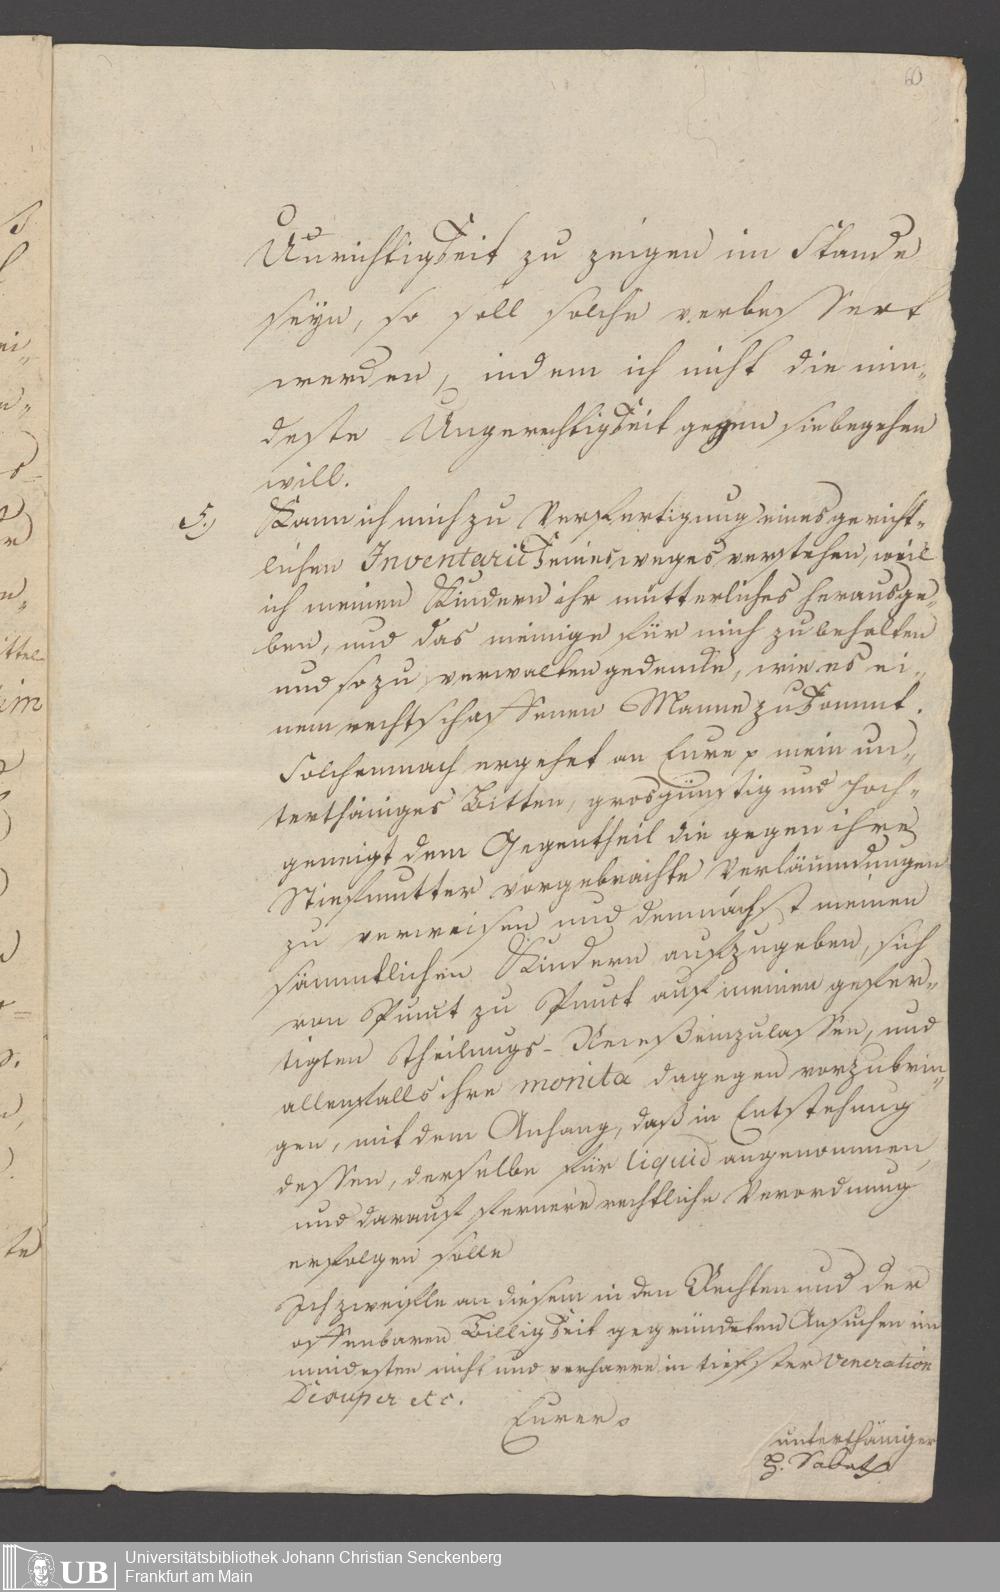 60
Unrichtigkeit zu zeigen im Stande
seyn, so soll solche verbessert
werden, indem ich nicht die min„
deste Ungerechtigkeit gegen sie begehen
will.
5.) Kann ich mich zu Verfertigung eines gericht„
lichen Inventarii keines weges verstehen, weil
ich meinen Kindern ihr mütterliches herausge„
ben, und das meinige für mich zu behalten
und so zu verwalten gedencke, wie es ei„
nem rechtschaffenen Manne zukommt.
Solchemnach ergehet an Eure p mein un„
terthäniges Bitten, grosgünstig und hoch„
geneigt dem Gegentheil die gegen ihre
Stiefmutter vorgebrachte Verläumdungen
zu verweisen und demnächst meinen
sämmtlichen Kindern aufzugeben, sich
von Punct zu Punct auf meinen gefer„
tigten Theilungs-Receß einzulassen, und
allenfalls ihre monita dagegen vorzubrin„
gen, mit dem Anhang, daß in Entstehung
dessen, derselbe für liquid angenommen,
und darauf fernere rechtliche Verordnung
erfolgen solle
Ich zweifle an diesem in den Rechten und der
offenbaren Billigkeit gegründeten Ansuchen im
mindesten nicht und verharre in tiefster Veneration
Desuper etc.
Eurer
unterthäniger
Universitätsbibliothek Johann Christian Senckenberg
Frankfurt am Main
UB